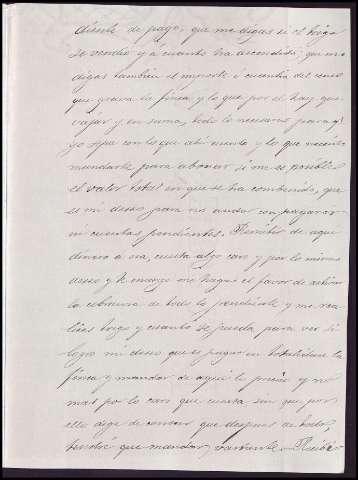 diente de pago; que me digas si el trigo
se vendió y á cuanto ha ascendido; que me
digas tambien el importe ó cuantia del censo
que grava la finca y lo que por el hay que
rapar y, en suma, todo lo necesario para q.e
yo sepa con lo que ahi cuento y lo que necesito
mandarte para abonar si me es posible
el valor total en que se ha combenido, que
es mi deseo para no andar con pagarés
ni cuentas pendientes. Remitir de aqui
dinero á esa, cuesta algo caro y por lo mismo
deseo y te encargo me hagas el favor de activar
la cobranza de todo lo pendiente y me rea-
lices trigo y cuanto se pueda para ver si
logro mi deseo que es pagar en totalidad la
finca y mandar de aqui lo preciso y no
mas por lo caro que cuesta sin que por
ello deje de conocer que despues de todo,
tendré que mandar, bastante. Recibí